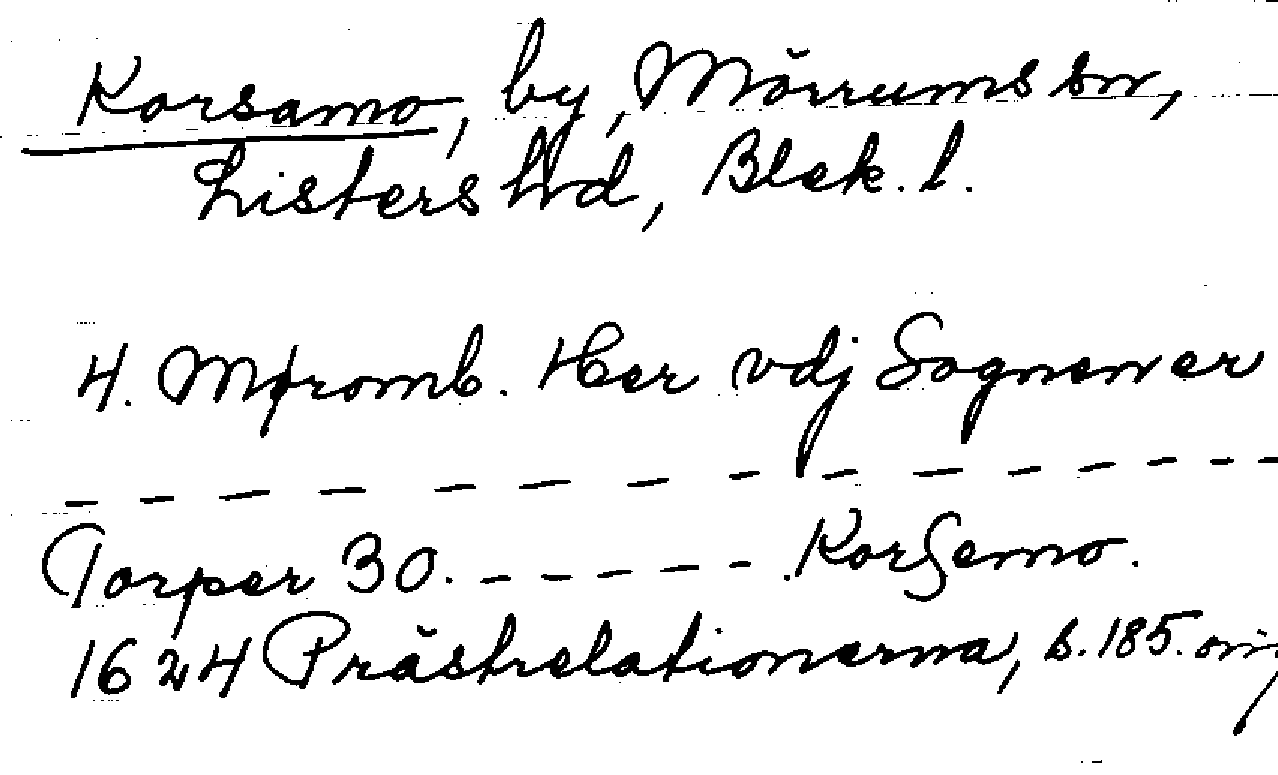 Korsamo, by, Mörrums sn,
Listers hd, Blek. l.
4. Møromb. Her vdj Sognener
- - - - - - - - - - - - - -
Torper 30. - - - - - - . Korsemo.
1624 Prästrelationerna, s. 185. orig